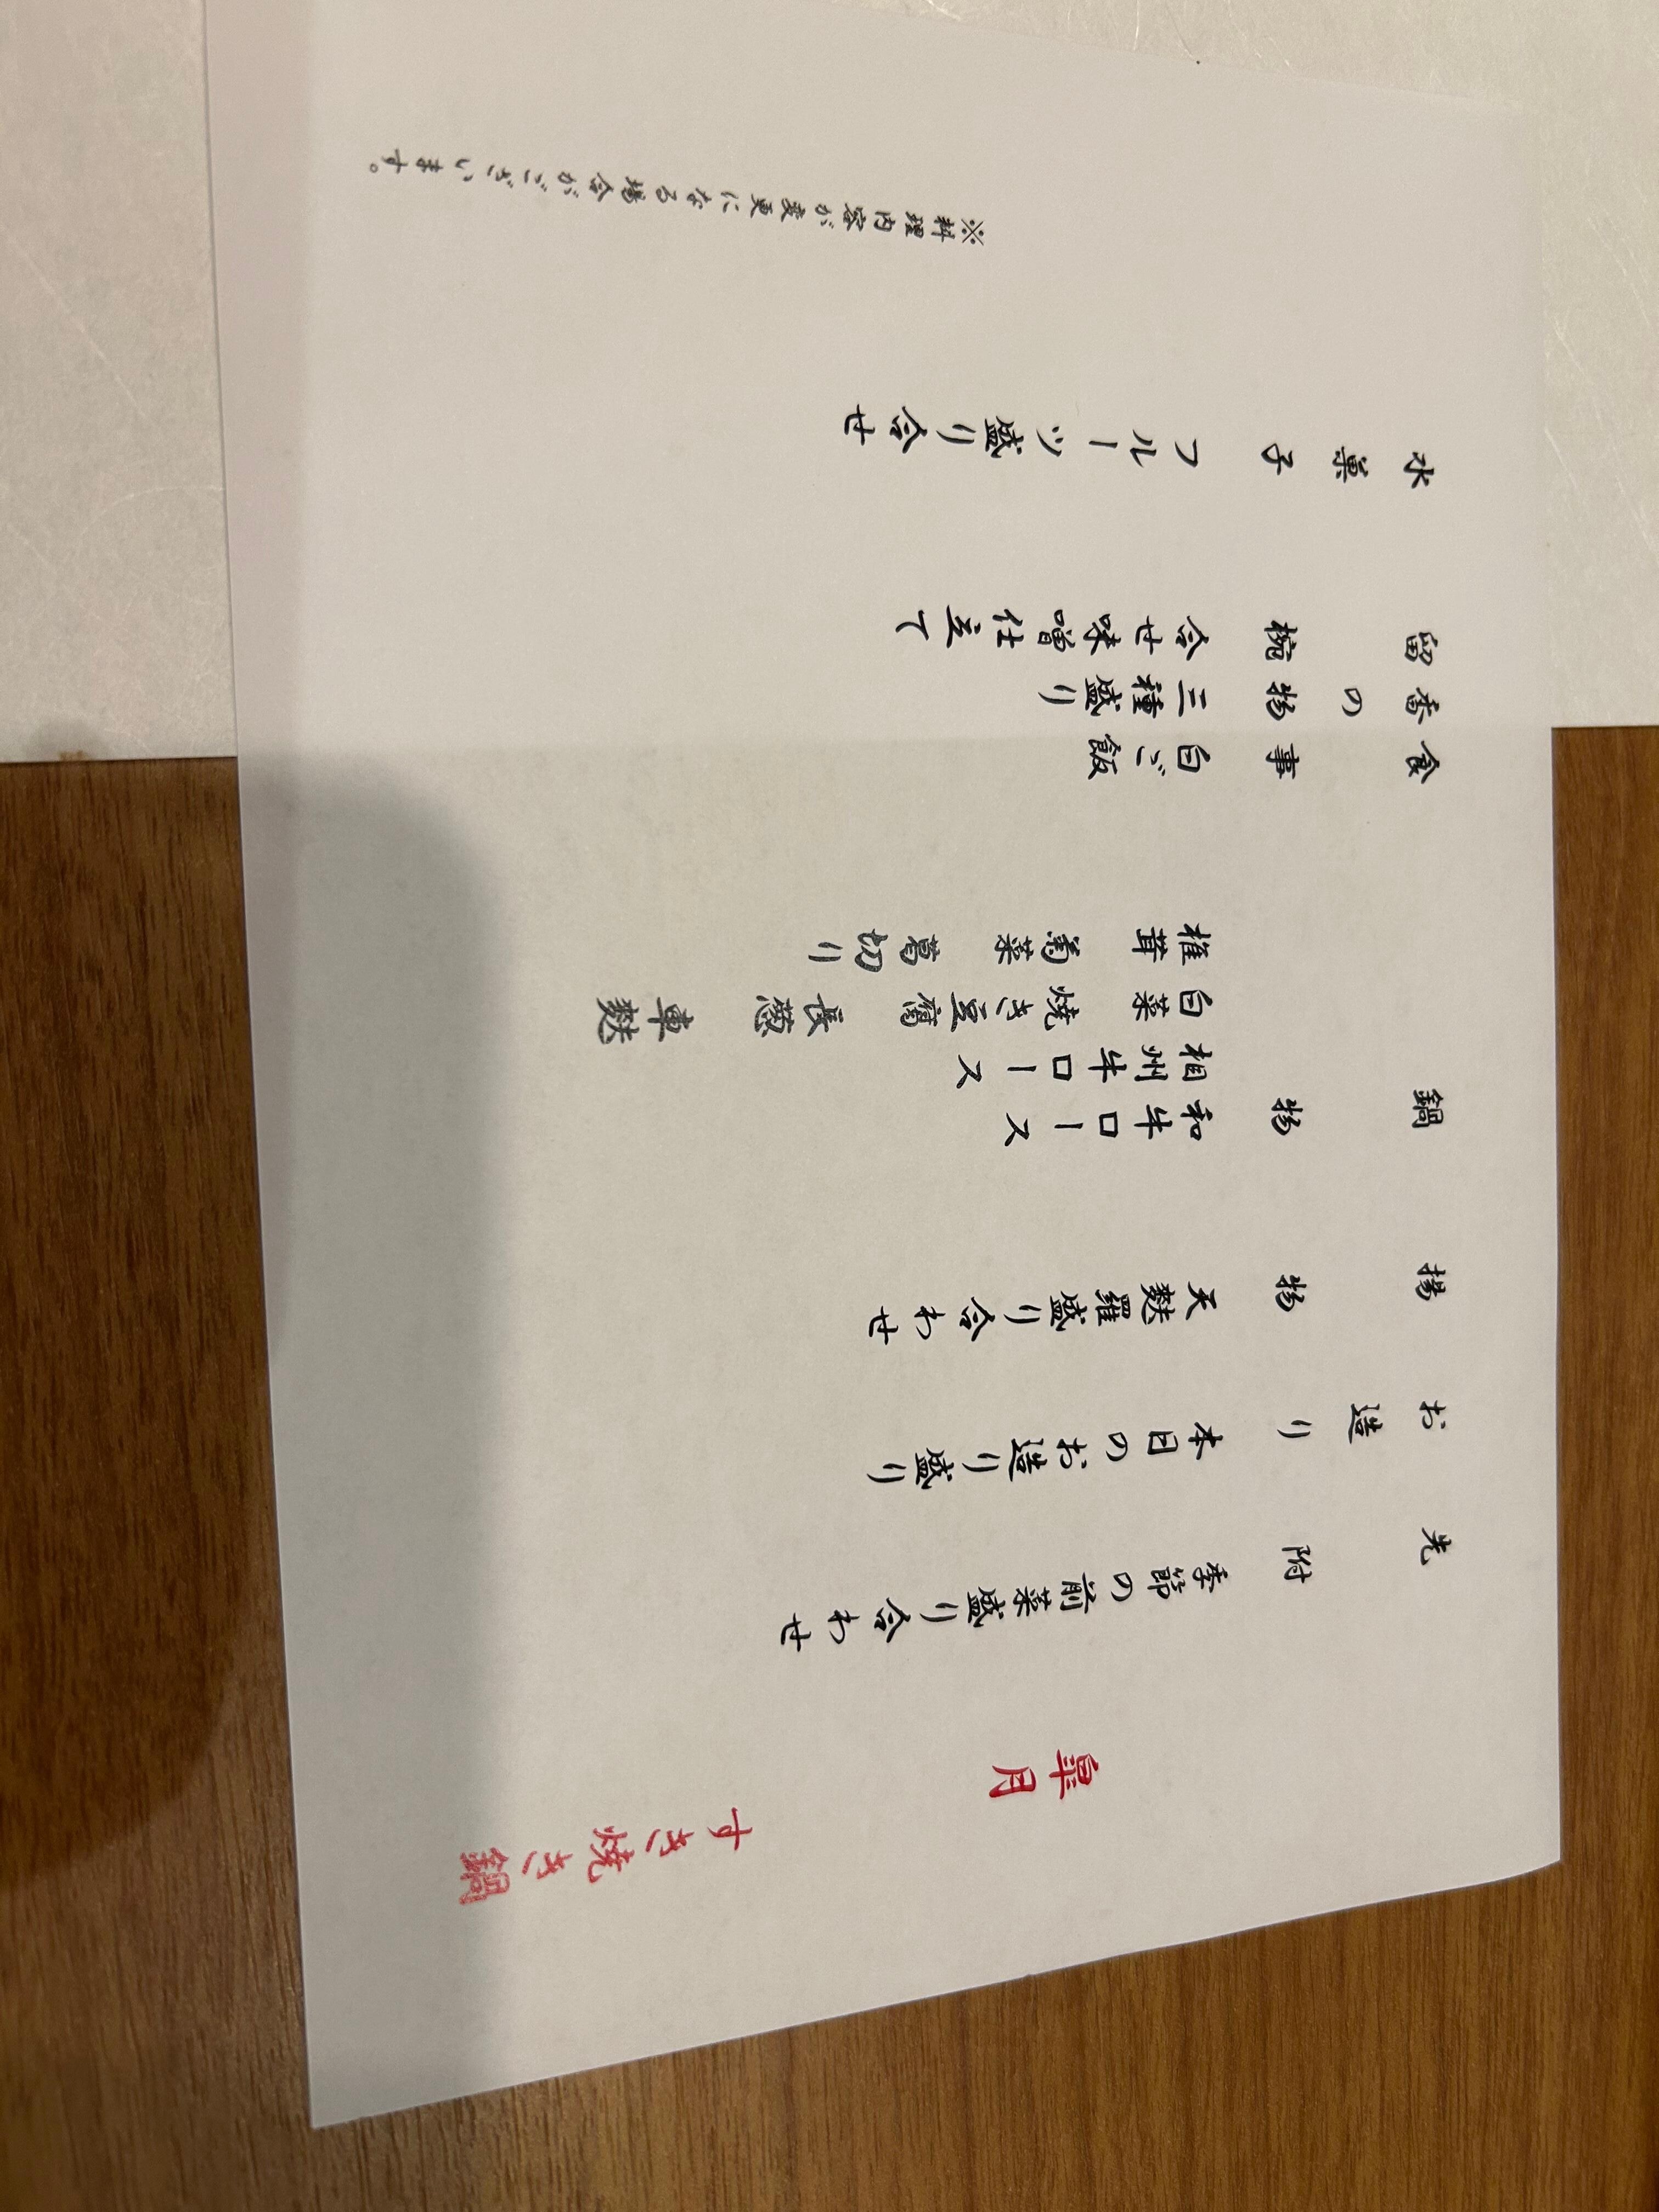 皐月
すき焼き鍋
先附 季節の前菜盛り合わせ
お造り 本日のお造り盛り
揚物 天麩羅盛り合わせ
鍋物 和牛ロース
相州牛ロース
白菜 焼き豆腐 長葱 車麩
椎茸 菊菜 葛切り
食事 白ご飯
香の物 三種盛り
留椀 合せ味噌仕立て
水菓子 フルーツ盛り合せ
※料理内容が変更になる場合がございます。